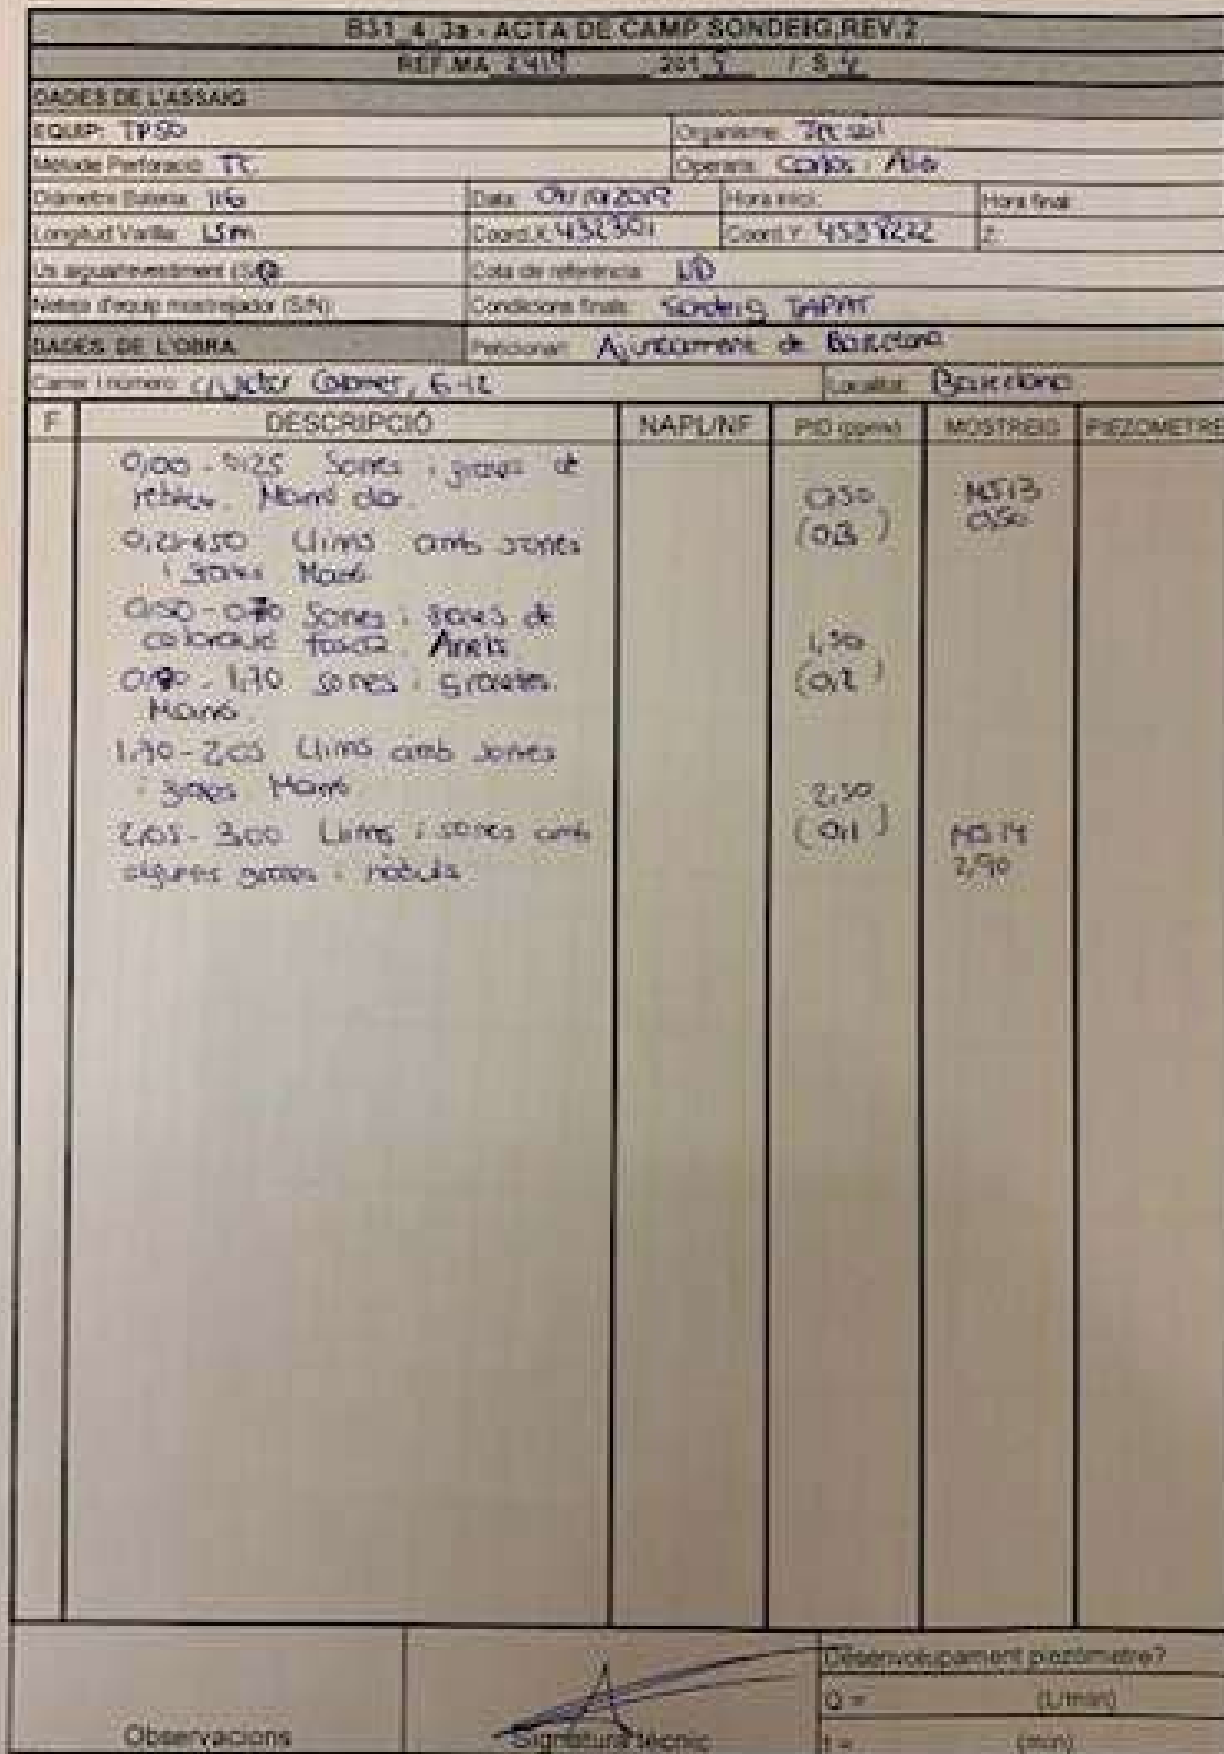 B31_4_3a - ACTA DE CAMP SONDEIG.REV.2
REF.MA 2419 2019 / S 4
DADES DE L'ASSAIG
EQUIP: TP50 Organisme:
Mètode Perforació: TC Operaris: Carlos i
Diàmetre Bateria: 116 Data: 09/10/2019 Hora inici: Hora final:
Longitud Varilla: 1,5m Coord.X: 432301 Coord.Y: 4589222 Z:
Ús aigua/revestiment (S/N): Cota de referència:
Neteja d'equip mostrejador (S/N): Condicions finals: Sondeig TAPAT
DADES DE L'OBRA Peticionari: Ajuntament de Barcelona
Carrer i número: c/ Víctor Colomer, 6-12 Localitat: Barcelona
F DESCRIPCIÓ NAPL/NF PID (ppmv) MOSTREIG PIEZÒMETRE
0,00 - 0,25 Sorres i graves de
rebliment. Marró clar. 0,50 MS13
(0,3) 0,50
Llims amb sorres
i graves Marró
0,50 - 0,70 Sorres i graves de
1,50
0,70 - 1,70 sorres i gravetes. (0,2)
Marró.
1,70 - 2,05 Llims amb sorres
i graves Marró 2,50
2,05 - 3,00 Llims i sorres amb (0,1) MS14
algunes graves i nòduls 2,90
Desenvolupament piezòmetre?
Q = (L/min)
Observacions Signatura tècnic t = (min)